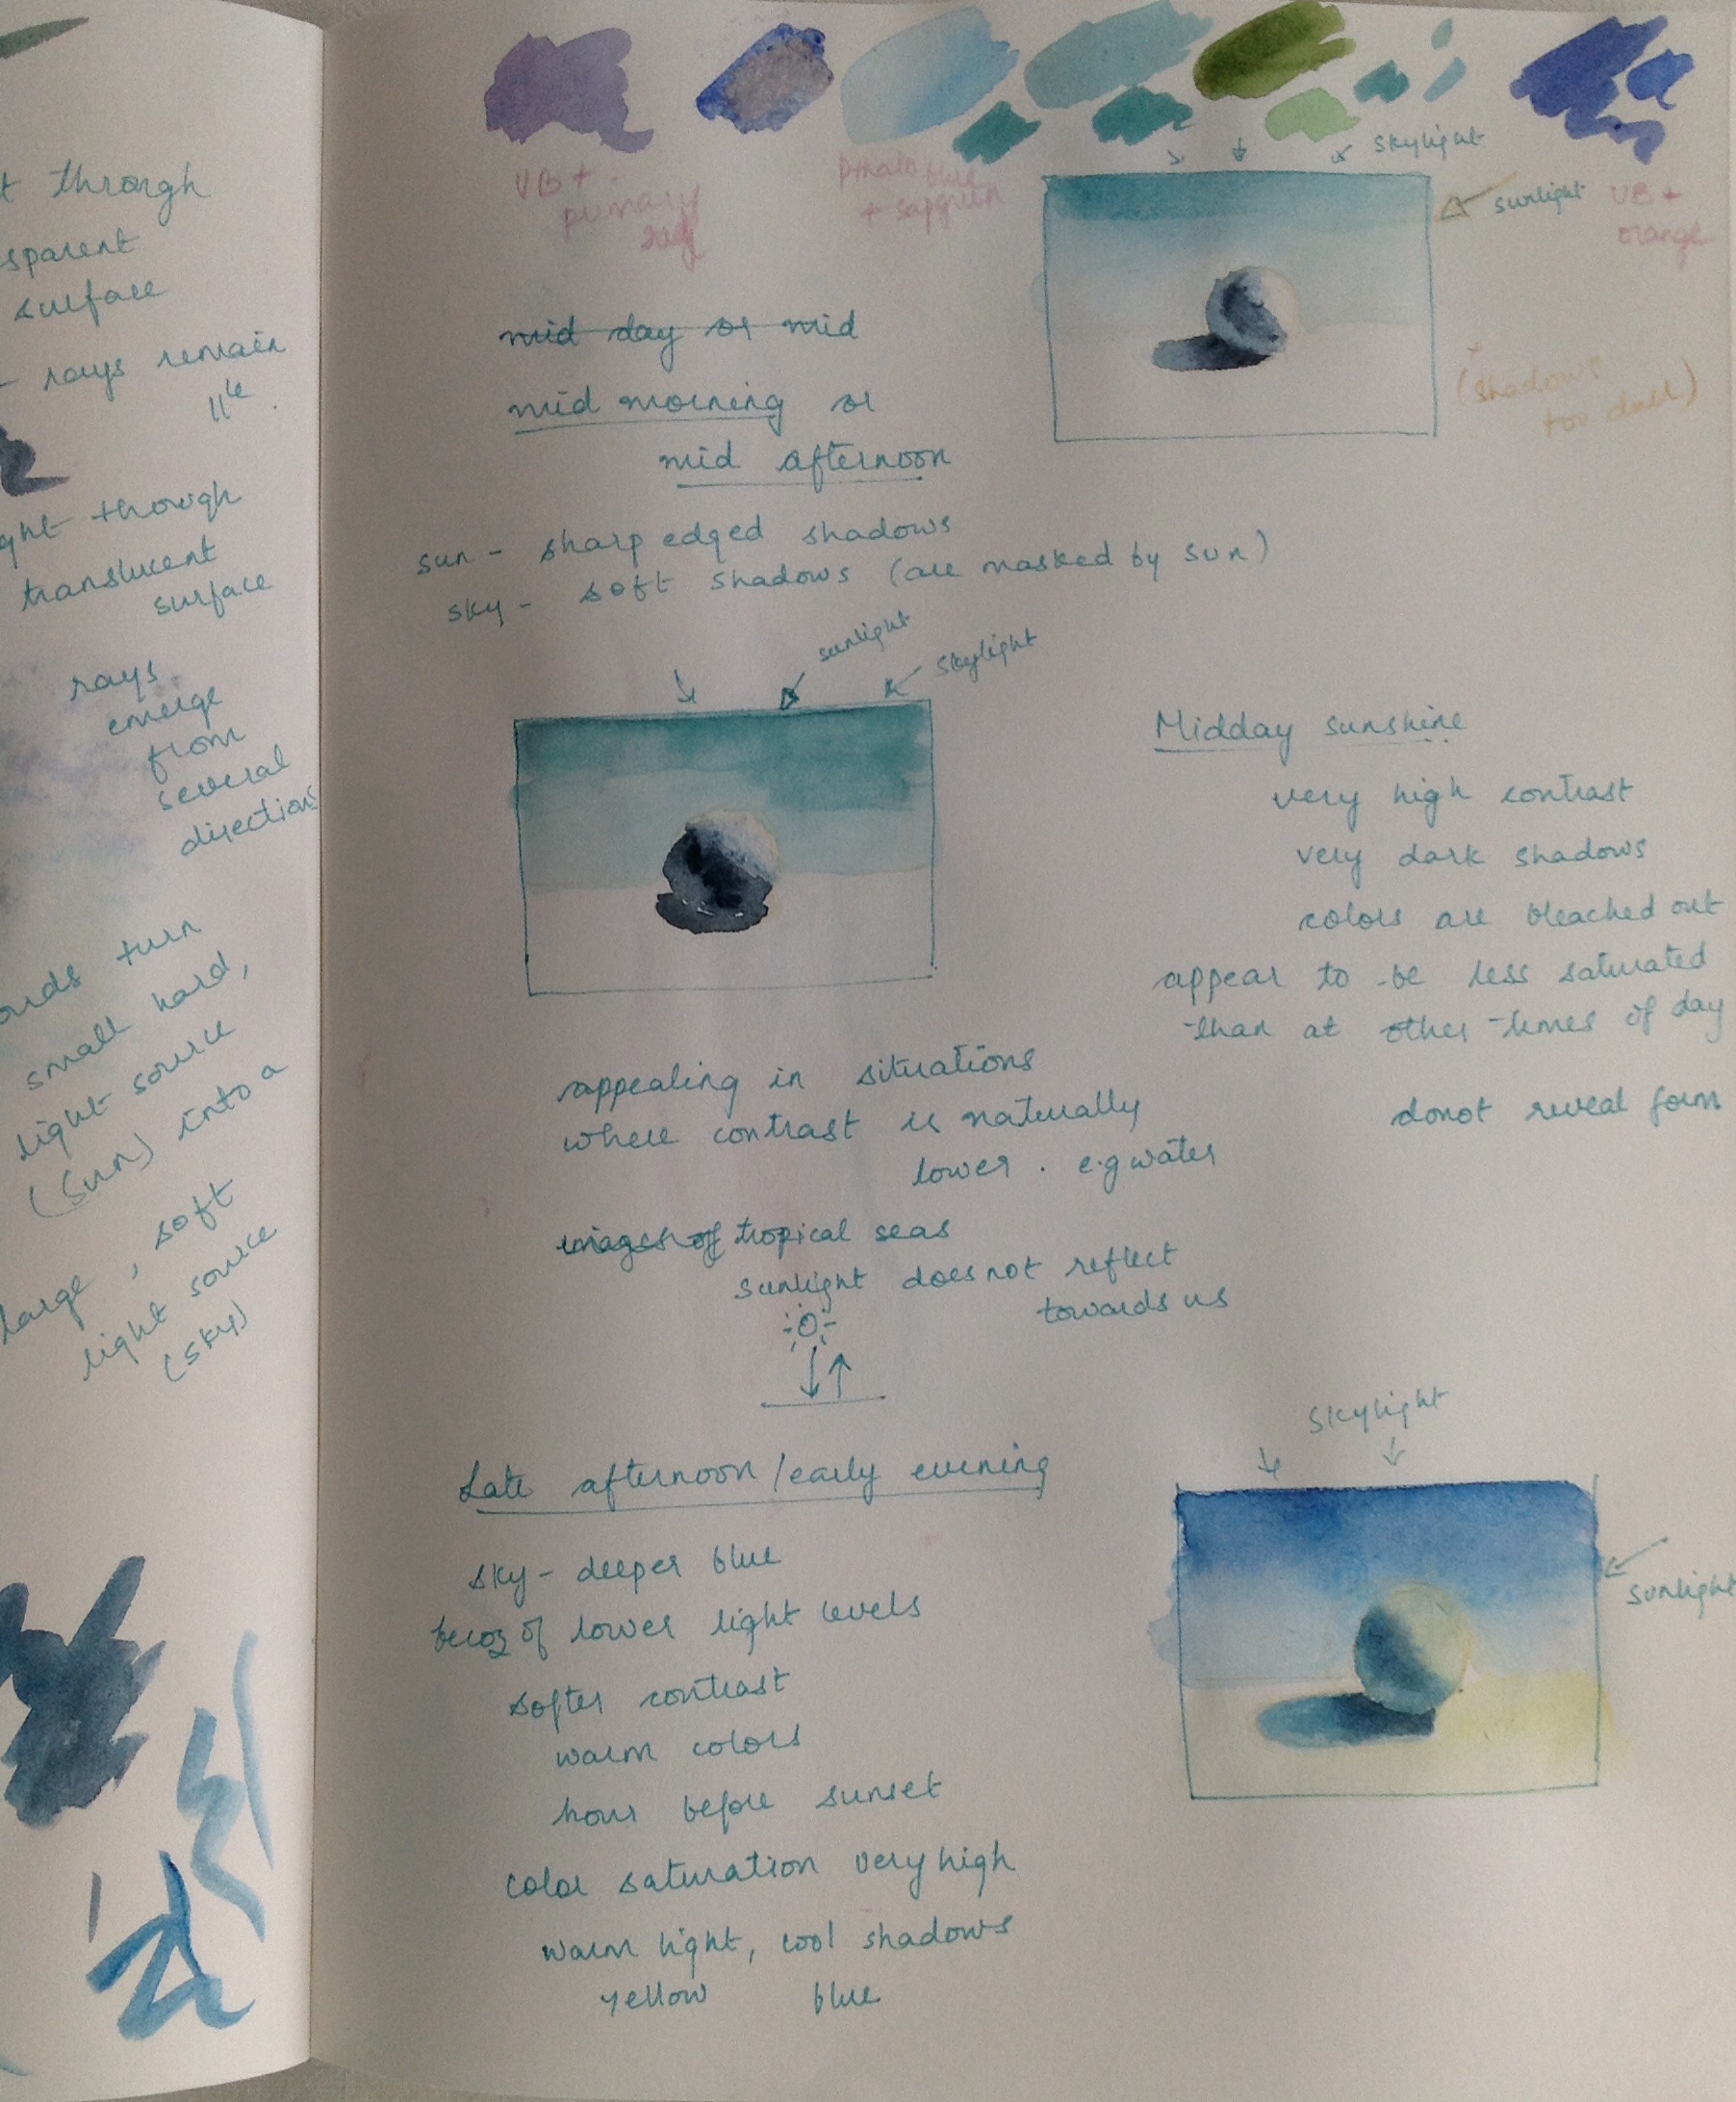 t through
sparent
surface
- rays remain
11le
ght through
translucent
surface
rays
emerge
from
several
directions
ouds turn
small hard,
light source
(sun) into a
large, soft
light source
(sky)
VB +
primary
Pthalo blue
+ sapgreen
skylight
sunlight
VB +
orange
(shadows
too dark)
mid day or mid
mid morning or
mid afternoon
sun - sharp edged shadows
sky - soft shadows (are masked by sun)
sunlight
skylight
Midday sunshine
very high contrast
very dark shadows
colors are bleached out
appear to be less saturated
than at other times of day
donot reveal form
appealing in situations
where contrast is naturally
lower. e.g water
images of tropical seas
sunlight does not reflect
towards us
Late afternoon/early evening
sky - deeper blue
becoz of lower light levels
softer contrast
warm colors
hour before sunset
color saturation very high
warm light, cool shadows
yellow blue
skylight
sunlight